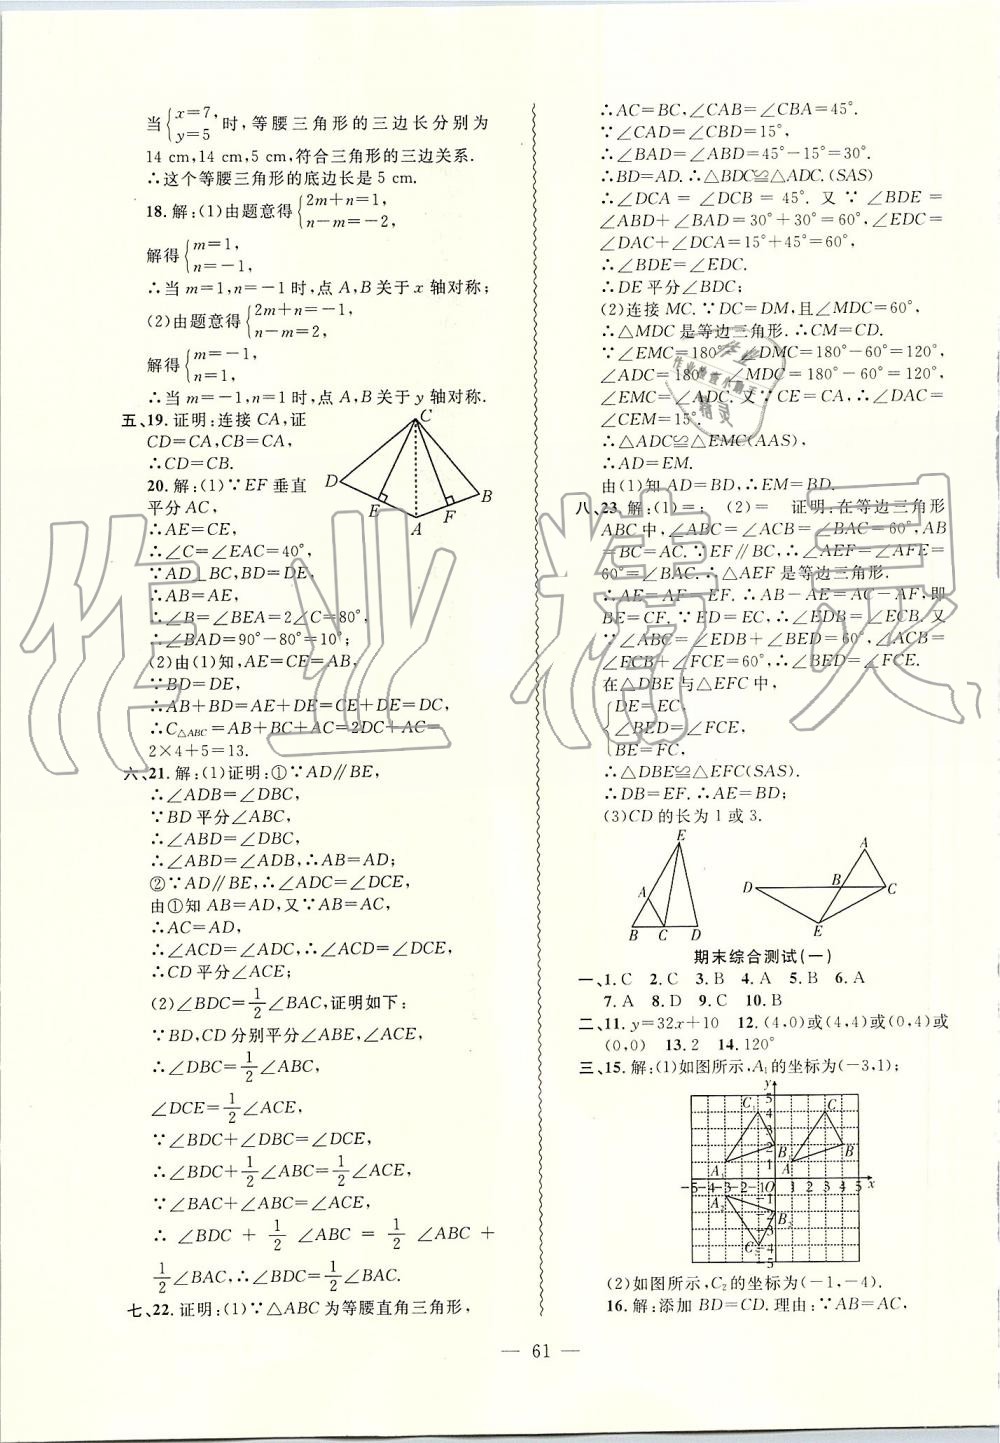 当{x=7, y=5 时,等腰三角形的三边长分别为
14 cm,14 cm,5 cm,符合三角形的三边关系.
∴这个等腰三角形的底边长是 5 cm.
18.解:(1)由题意得{2m+n=1, n-m=-2,
解得{m=1, n=-1,
∴当 m=1,n=-1 时,点 A,B 关于 x 轴对称;
(2)由题意得{2m+n=-1, n-m=2,
解得{m=-1, n=1,
∴当 m=-1,n=1 时,点 A,B 关于 y 轴对称.
五、19.证明:连接 CA,证
CD=CA,CB=CA,
∴CD=CB.
20.解:(1)∵EF 垂直
平分 AC,
∴AE=CE,
∴∠C=∠EAC=40°,
∵AD⊥BC,BD=DE,
∴AB=AE,
∴∠B=∠BEA=2∠C=80°,
∴∠BAD=90°-80°=10°;
(2)由(1)知,AE=CE=AB,
∵BD=DE,
∴AB+BD=AE+DE=CE+DE=DC,
∴C△ABC=AB+BC+AC=2DC+AC=
2×4+5=13.
六、21.解:(1)证明:①∵AD∥BE,
∴∠ADB=∠DBC,
∵BD 平分∠ABC,
∴∠ABD=∠DBC,
∴∠ABD=∠ADB,∴AB=AD;
②∵AD∥BE,∴∠ADC=∠DCE,
由①知 AB=AD,又∵AB=AC,
∴AC=AD,
∴∠ACD=∠ADC,∴∠ACD=∠DCE,
∴CD 平分∠ACE;
(2)∠BDC=1/2∠BAC,证明如下:
∵BD,CD 分别平分∠ABE,∠ACE,
∴∠DBC=1/2∠ABC,
∠DCE=1/2∠ACE,
∵∠BDC+∠DBC=∠DCE,
∴∠BDC+1/2∠ABC=1/2∠ACE,
∵∠BAC+∠ABC=∠ACE,
∴∠BDC+1/2∠ABC=1/2∠ABC+
1/2∠BAC,∴∠BDC=1/2∠BAC.
七、22.证明:(1)∵△ABC 为等腰直角三角形,
C
D
E
A
F
B
∴AC=BC,∠CAB=∠CBA=45°.
∵∠CAD=∠CBD=15°,
∴∠BAD=∠ABD=45°-15°=30°.
∴BD=AD.∴△BDC≌△ADC.(SAS)
∴∠DCA=∠DCB=45°. 又∵∠BDE=
∠ABD+∠BAD=30°+30°=60°,∠EDC=
∠DAC+∠DCA=15°+45°=60°,
∴∠BDE=∠EDC.
∴DE 平分∠BDC;
(2)连接 MC.∵DC=DM,且∠MDC=60°,
∴△MDC 是等边三角形.∴CM=CD.
∵∠EMC=180°-∠DMC=180°-60°=120°,
∠ADC=180°-∠MDC=180°-60°=120°,
∴∠EMC=∠ADC. 又∵CE=CA,∴∠DAC=
∠CEM=15°.
∴△ADC≌△EMC(AAS),
∴AD=EM.
由(1)知 AD=BD,∴EM=BD.
八、23.解:(1)=; (2)= 证明:在等边三角形
ABC 中,∠ABC=∠ACB=∠BAC=60°,AB
=BC=AC.∵EF∥BC,∴∠AEF=∠AFE=
60°=∠BAC,∴△AEF 是等边三角形.
∴AE=AF=EF.∴AB-AE=AC-AF,即
BE=CF.∵ED=EC,∴∠EDB=∠ECB. 又
∵∠ABC=∠EDB+∠BED=60°,∠ACB=
∠FCB+∠FCE=60°,∴∠BED=∠FCE.
在△DBE 与△EFC 中,
{DE=EC,
∠BED=∠FCE,
BE=FC,
∴△DBE≌△EFC(SAS).
∴DB=EF.∴AE=BD;
(3)CD 的长为 1 或 3.
E
A
B C D
A
D B C
E
期末综合测试(一)
一、1.C 2.C 3.B 4.A 5.B 6.A
7.A 8.D 9.C 10.B
二、11.y=32x+10 12.(4,0)或(4,4)或(0,4)或
(0,0) 13.2 14.120°
三、15.解:(1)如图所示,A₁的坐标为(-3,1);
y
5
4
3
2
1
C₁
C
B₁
B
A₁
A
-5-4-3-2-1 O 1 2 3 4 5 x
A₂
B₂
C₂
-1
-2
-3
-4
-5
(2)如图所示,C₂的坐标为(-1,-4).
16.解:添加 BD=CD.理由:∵AB=AC,
— 61 —
作业精灵